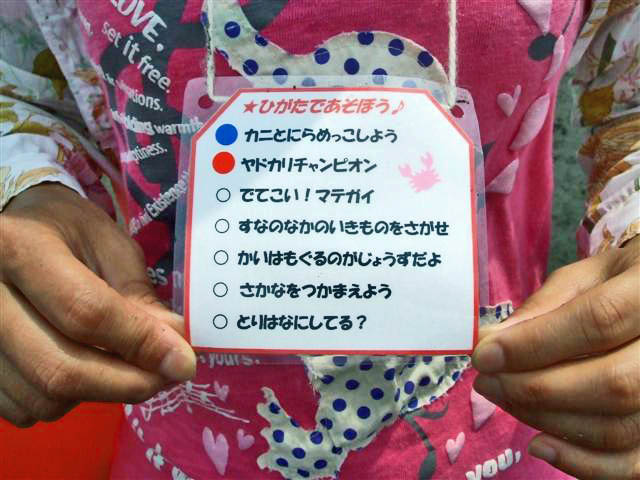 LOVE.
set it free.
warmth
★ひがたであそぼう♪
カニとにらめっこしよう
ヤドカリチャンピオン
○ でてこい！マテガイ
○ すなのなかのいきものをさがせ
○ かいはもぐるのがじょうずだよ
○ さかなをつかまえよう
○ とりはなにしてる？
yours.
you,